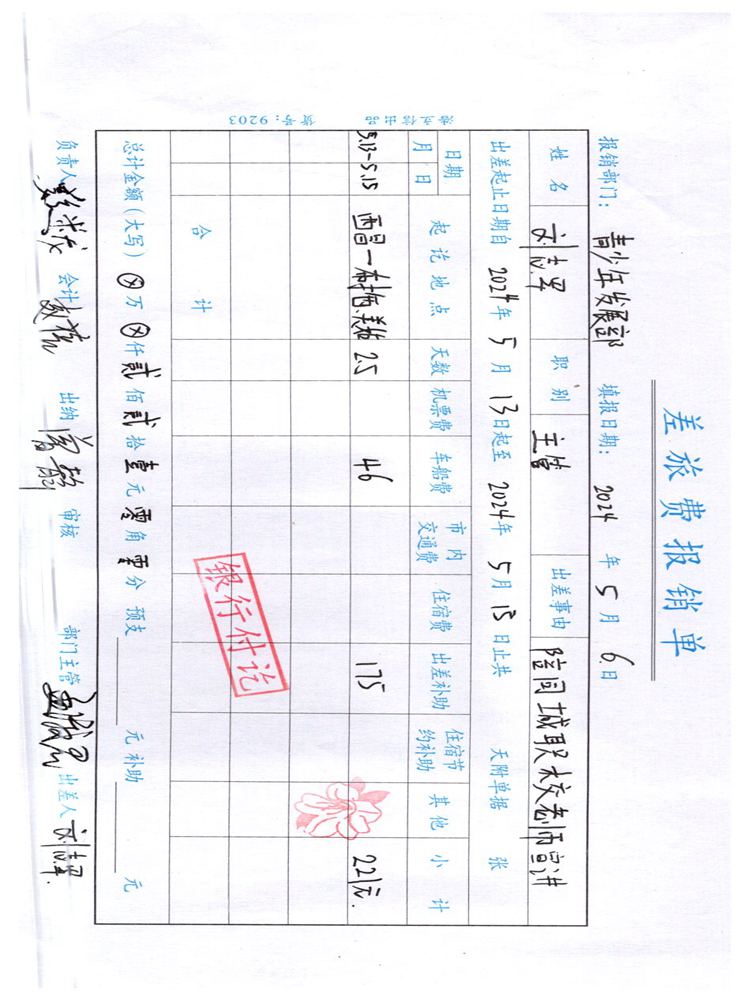 差旅费报销单
报销部门： 青少年发展部 填报日期： 2024 年 5 月 6 日
姓名 刘志罡 职别 主管 出差事由 陪同城联校老师宣讲
出差起止日期自 2024 年 5 月 13 日起至 2024 年 5 月 15 日止共 天附单据 张
日期 起讫地点 天数 机票费 车船费 市内交通费 住宿费 出差补助 住宿节约补助 其他 小计
月 日
5.13-5.15 西昌— 2.5 46 175 221元
银行付讫
合计
总计金额（大写） ⊗ 万 ⊗ 仟 贰 佰 贰 拾 壹 元 零 角 零 分 预支 元 补助 元
负责人 会计 出纳 审核 部门主管 出差人 刘志罡
浩立信出品 货号：9203